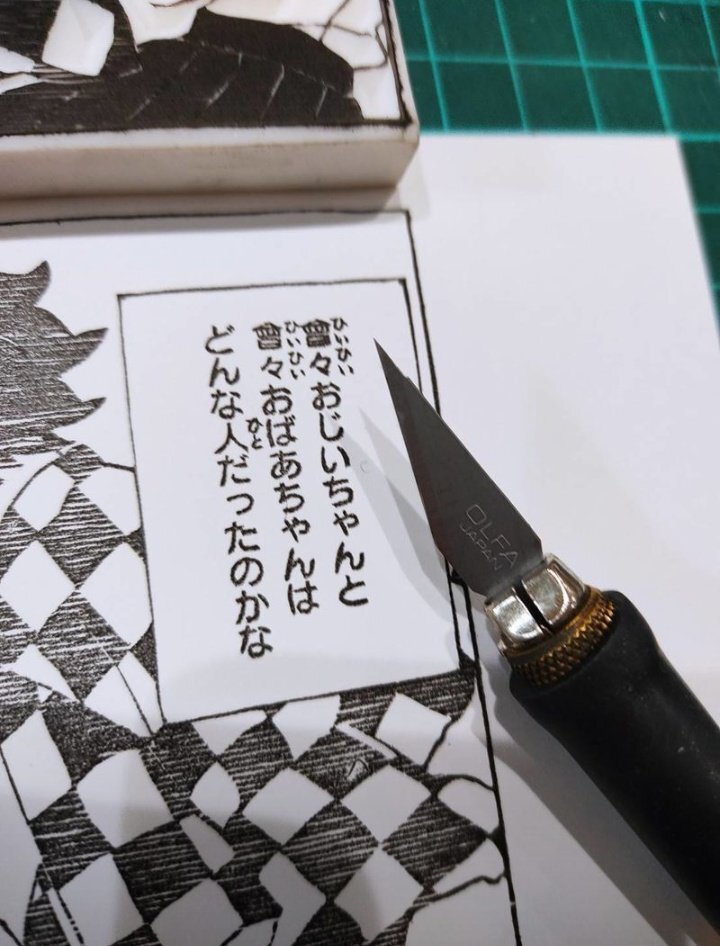 曾々おじいちゃんと
ひいひい
曾々おばあちゃんは
ひいひい
どんな人だったのかな
ひと
OLFA
JAPAN